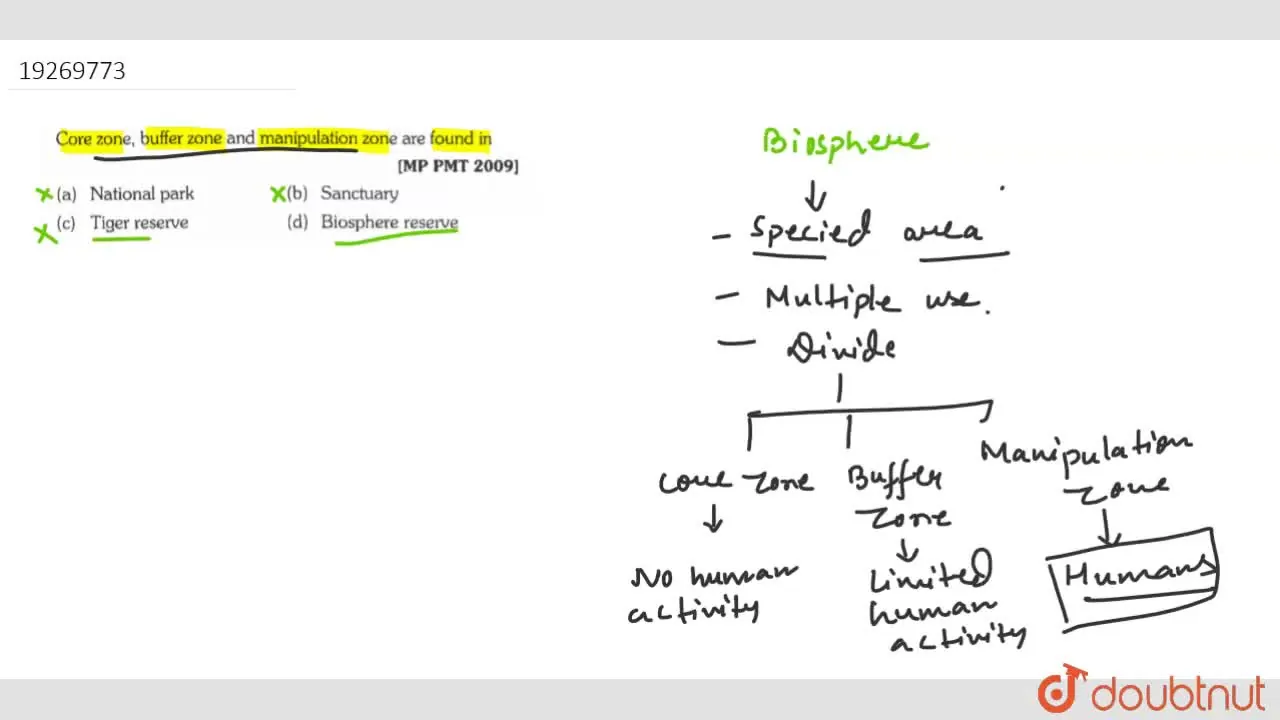 19269773
Core zone, buffer zone and manipulation zone are found in
[MP PMT 2009]
(a) National park (b) Sanctuary
(c) Tiger reserve (d) Biosphere reserve
Biosphere
- Specied area
- Multiple use.
- Divide
Core zone Buffer Zone Manipulation Zone
No human activity
Limited human activity
Humans
doubtnut